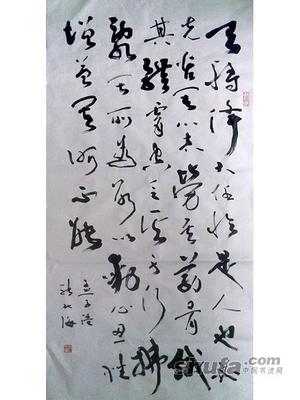 天將降大任於是人也必
先苦其心志勞其筋骨餓
其體膚空乏其身行拂
亂其所為所以動心忍性
增益其所不能
孟子語